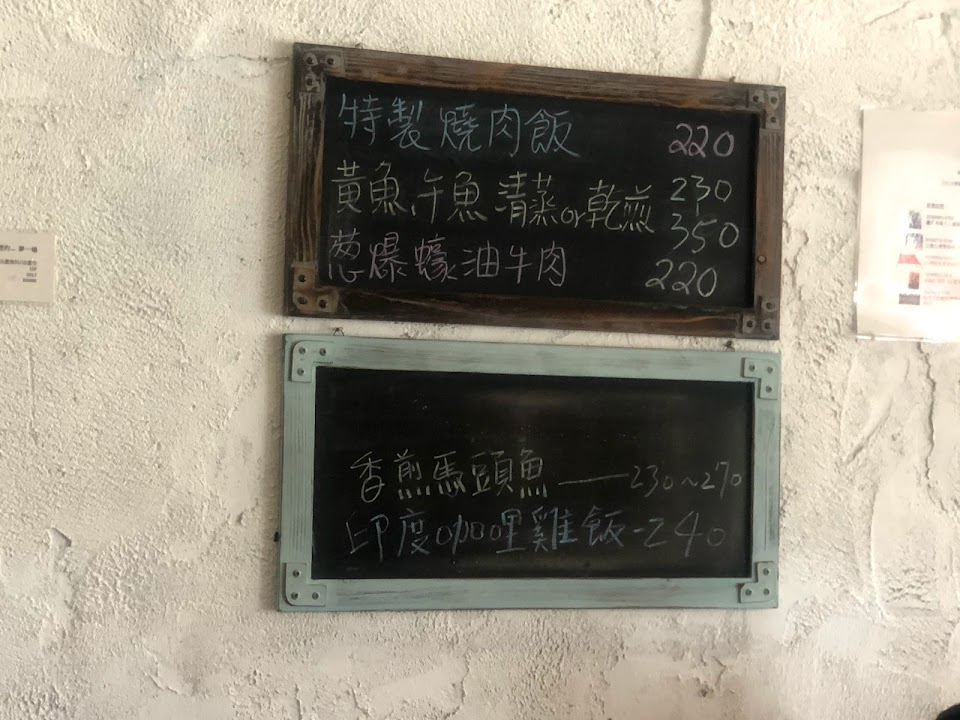 特製燒肉飯 220
黃魚、午魚 清蒸or乾煎 230
350
蔥爆蠔油牛肉 220
香煎馬頭魚——230~270
印度咖哩雞飯-240